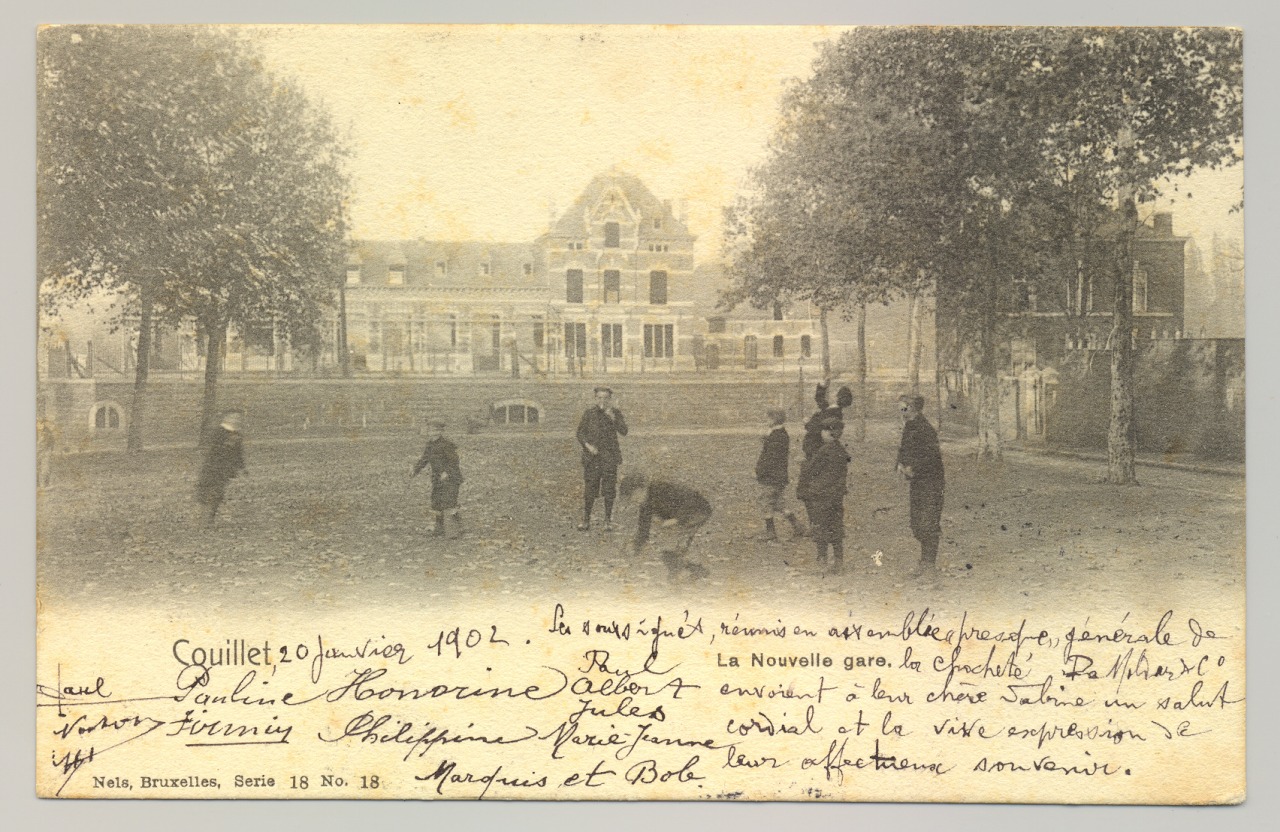 Couillet, 20 Janvier 1902.
Les soussignés, réunis en assemblée (presque) générale de
La Nouvelle gare.
la Société
& Cº
envoient à leur chère Sabine un salut
cordial et la vive expression de
leur affectueux souvenir.
Paul
Pauline Honorine
Paul
Albert
Jules
Philippine Marie-Jeanne
Marquis et Bob.
Nels, Bruxelles, Serie 18 No. 18